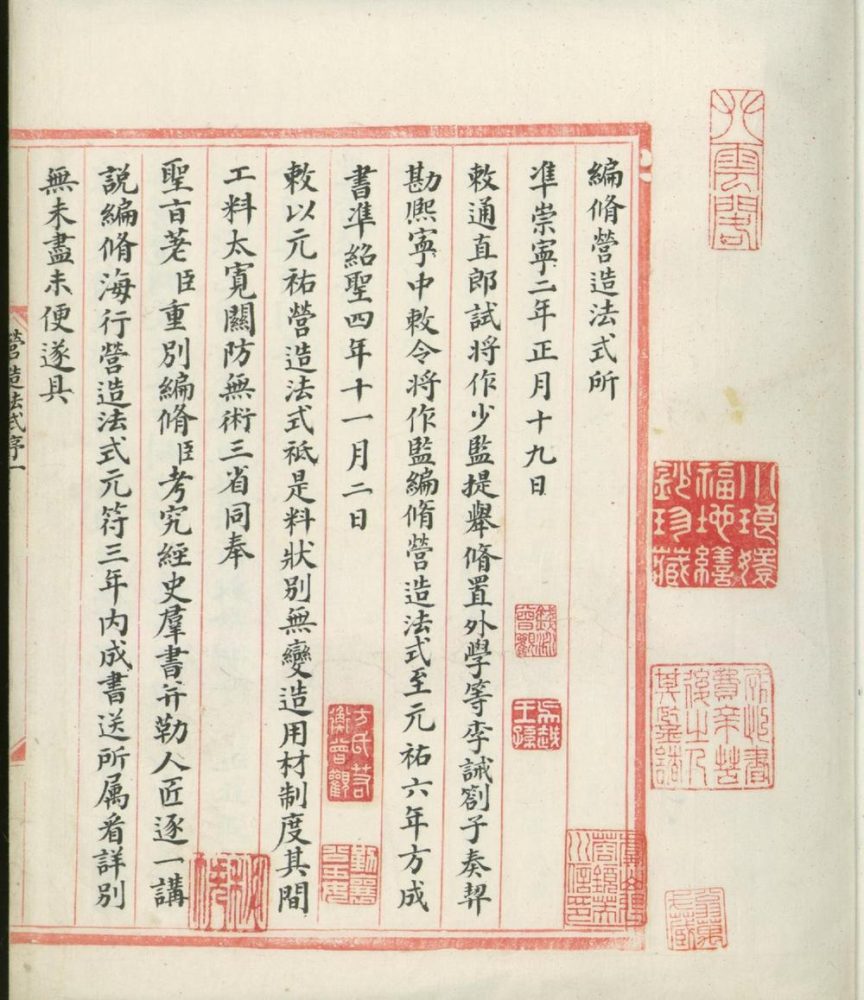 編脩營造法式所
準崇寧二年正月十九日
敕通直郎試將作少監提舉脩置外學等李誡劄子奏契
勘熙寧中敕令將作監編脩營造法式至元祐六年方成
書準紹聖四年十一月二日
敕以元祐營造法式秪是料狀別無變造用材制度其間
工料太寬關防無術三省同奉
聖旨著臣重別編脩臣考究經史羣書并勒人匠逐一講
說編脩海行營造法式元符三年內成書送所屬看詳別
無未盡未便遂具
營造法式序一
小琅嬛
福地繕
鈔珍藏
錢泳
曾觀
吳越
王孫
方氏若
衡曾觀